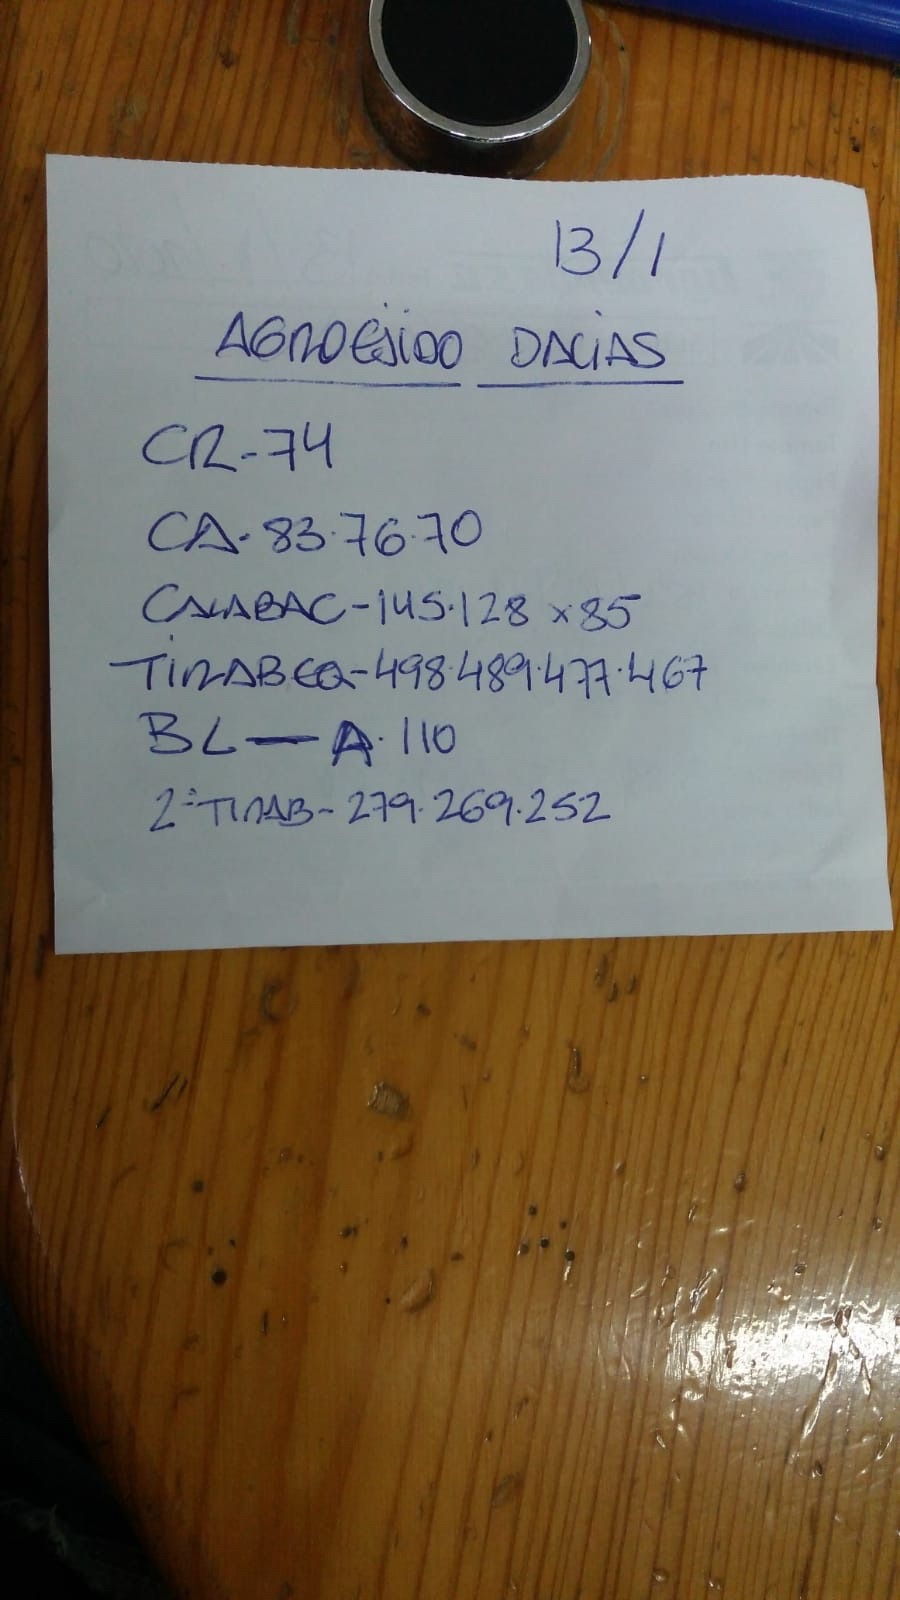 13/1
AGROEJIDO DALIAS
CR-74
CA-83.76.70
CALABAC-145.128 x 85
TIRABEQ-498.489.477.467
BL — A.110
2ª TIRAB-279.269.252